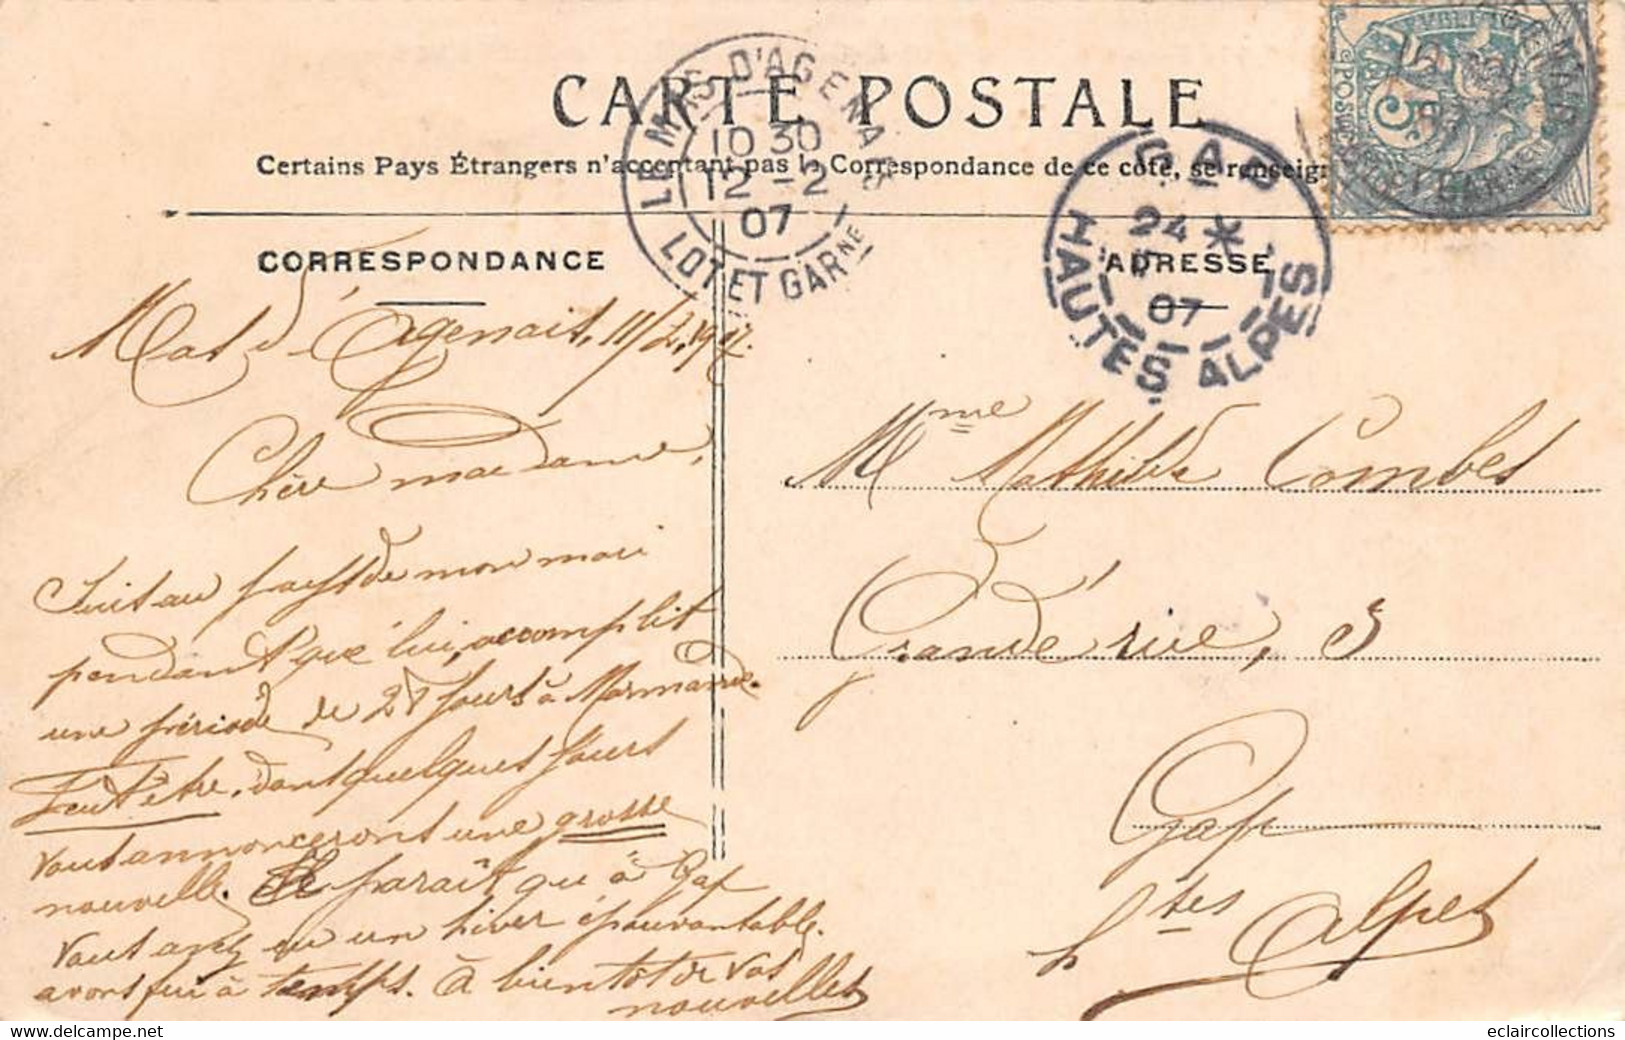 CARTE POSTALE
Certains Pays Étrangers n'acceptant pas la Correspondance de ce côté, se renseign
LE MAS D'AGENAIS
10 30
12 - 2
07
LOT ET GARNE
GAP
24 *
07
HAUTES ALPES
5
POSTES
CORRESPONDANCE
ADRESSE
Mas d'Agenais, 11/2, 1907.
Chère madame,
Suis au pays de mon mari
pendant que lui, accomplit
une période de 28 jours à Marmande.
Peut être, dans quelques jours
vous annoncerons une grosse
nouvelle. Il paraît qu'à Gap
vous avez eu un hiver épouvantable.
avons fui à temps. à bientôt de vos
nouvelles
Mme Mathilde Combes
Grande rue, 3
Gap
htes Alpes
eclaircollections@delcampe.net